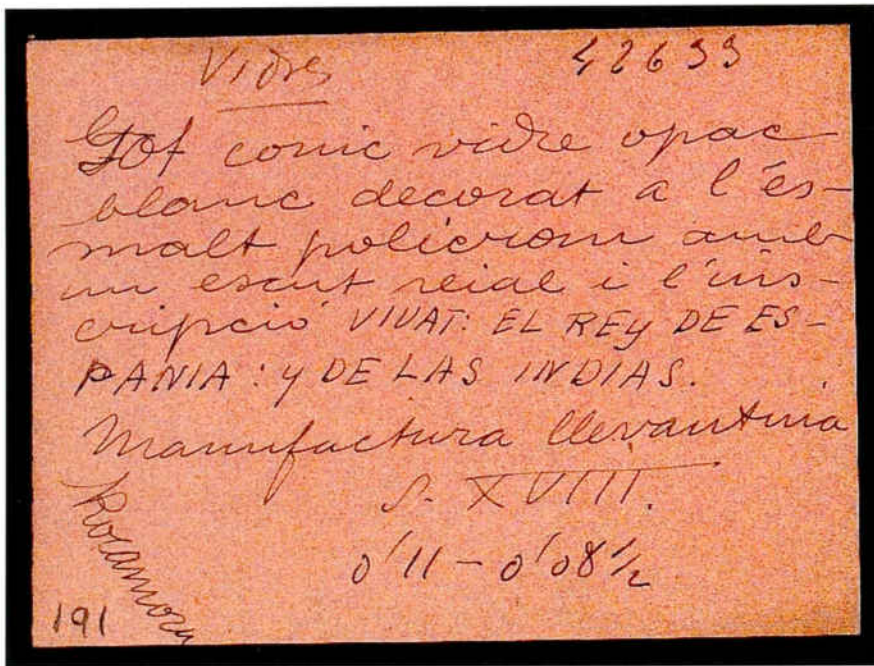 Vidres 42633
Got conic vidre opac
blanc decorat a l'es-
malt policrom amb
un escut reial i l'ins-
cripció VIVAT: EL REY DE ES-
PANIA: Y DE LAS INDIAS.
Manufactura llevantina
S. XVIII.
0'11 - 0'08 1/2
Rocamora
191